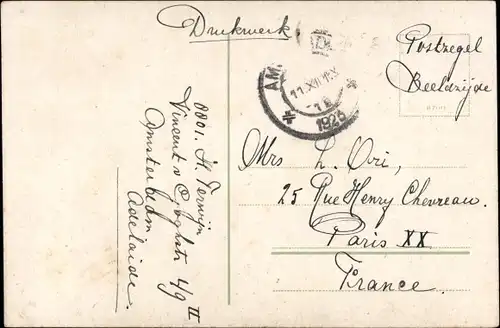 Drukwerk
Postzegel
Beeldzijde
AM
11.XII
1926
8801. A. Terwijn
Vincent v Goghstr 4/9 II
Amsterdam
Adelaide.
Mrs L. Ori,
25 Rue Henry Chevreau.
Paris XX
France.